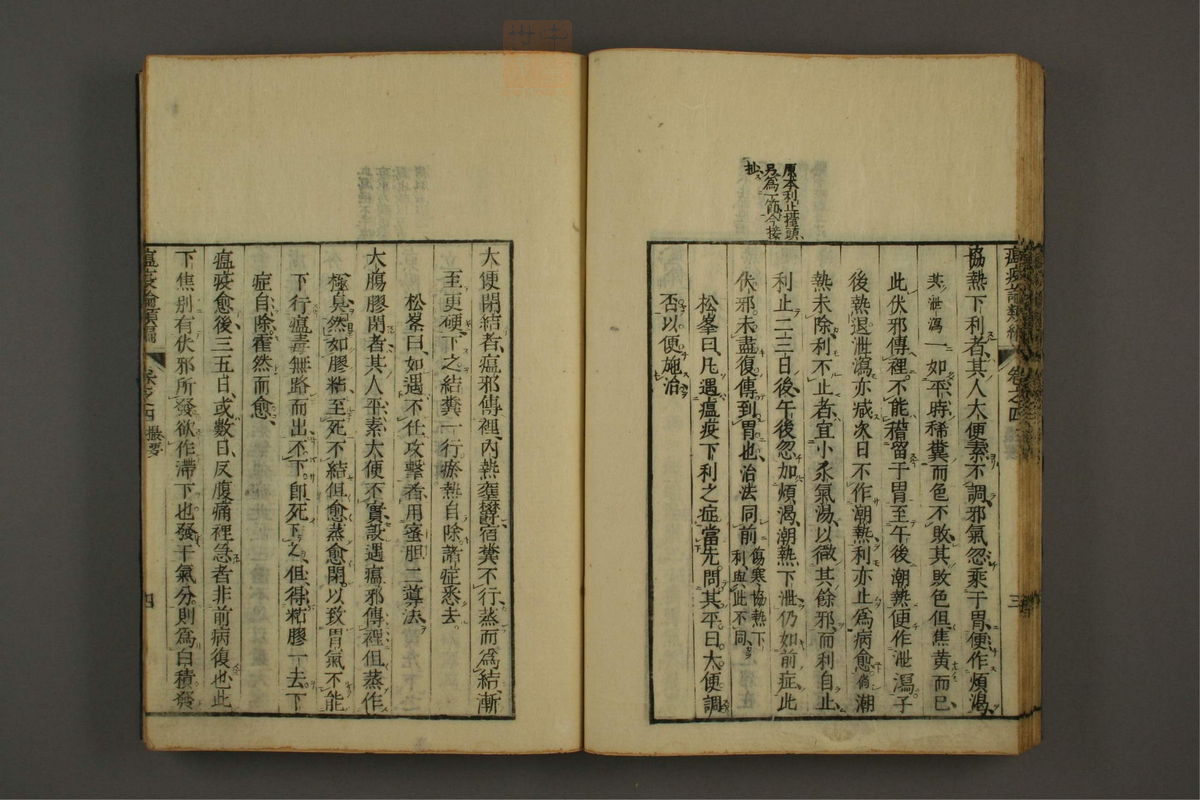 原本利止擡頭
另爲一節今接
抄
瘟疫論類編 卷之四 三
協熱下利者其人大便素不調邪氣忽乘于胃便作煩渴
其泄瀉一如平時稀糞而色不敗其敗色但焦黄而已
此伏邪傳裡不能稽留于胃至午後潮熱便作泄瀉子
後熱退泄瀉亦減次日不作潮熱利亦止爲病愈倘潮
熱未除利不止者宜小承氣湯以徹其餘邪而利自止
利止二三日後午後忽加煩渴潮熱下泄仍如前症此
伏邪未盡復傳到胃也治法同前傷寒協熱下利與此不同
松峯曰凡遇瘟疫下利之症當先問其平日大便調
否以便施治
大便閉結者瘟邪傳裡內熱壅鬱宿糞不行蒸而爲結漸
至更硬下之結糞一行瘀熱自除諸症悉去
松峯曰如遇不任攻擊者用蜜胆二導法
大腸膠閉者其人平素大便不實設遇瘟邪傳裡但蒸作
極臭然如膠粘至死不結但愈蒸愈閉以致胃氣不能
下行瘟毒無路而出不下即死下之但得粘膠一去下
症自除霍然而愈
瘟疫愈後三五日或數日反腹痛裡急者非前病復也此
下焦别有伏邪所發欲作滯下也發于氣分則爲白積發
瘟疫論類編 卷之四 撮要 四